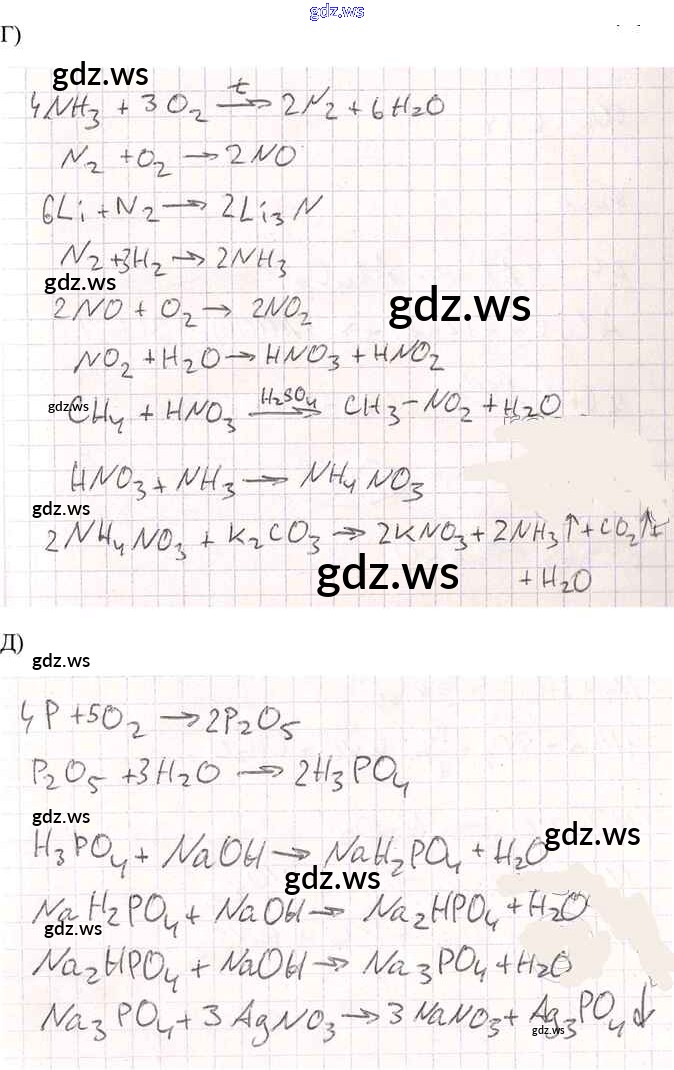 gdz.ws
Г)
gdz.ws
4NH3 + 3O2 →t 2N2 + 6H2O
N2 + O2 → 2NO
6Li + N2 → 2Li3N
N2 + 3H2 → 2NH3
gdz.ws
gdz.ws
2NO + O2 → 2NO2
NO2 + H2O → HNO3 + HNO2
gdz.ws
CH4 + HNO3 →H2SO4 CH3-NO2 + H2O
HNO3 + NH3 → NH4NO3
gdz.ws
2NH4NO3 + K2CO3 → 2KNO3 + 2NH3↑ + CO2↑ +
gdz.ws
+ H2O
Д)
gdz.ws
4P + 5O2 → 2P2O5
P2O5 + 3H2O → 2H3PO4
gdz.ws
gdz.ws
H3PO4 + NaOH → NaH2PO4 + H2O
gdz.ws
NaH2PO4 + NaOH → Na2HPO4 + H2O
gdz.ws
Na2HPO4 + NaOH → Na3PO4 + H2O
Na3PO4 + 3AgNO3 → 3NaNO3 + Ag3PO4↓
gdz.ws